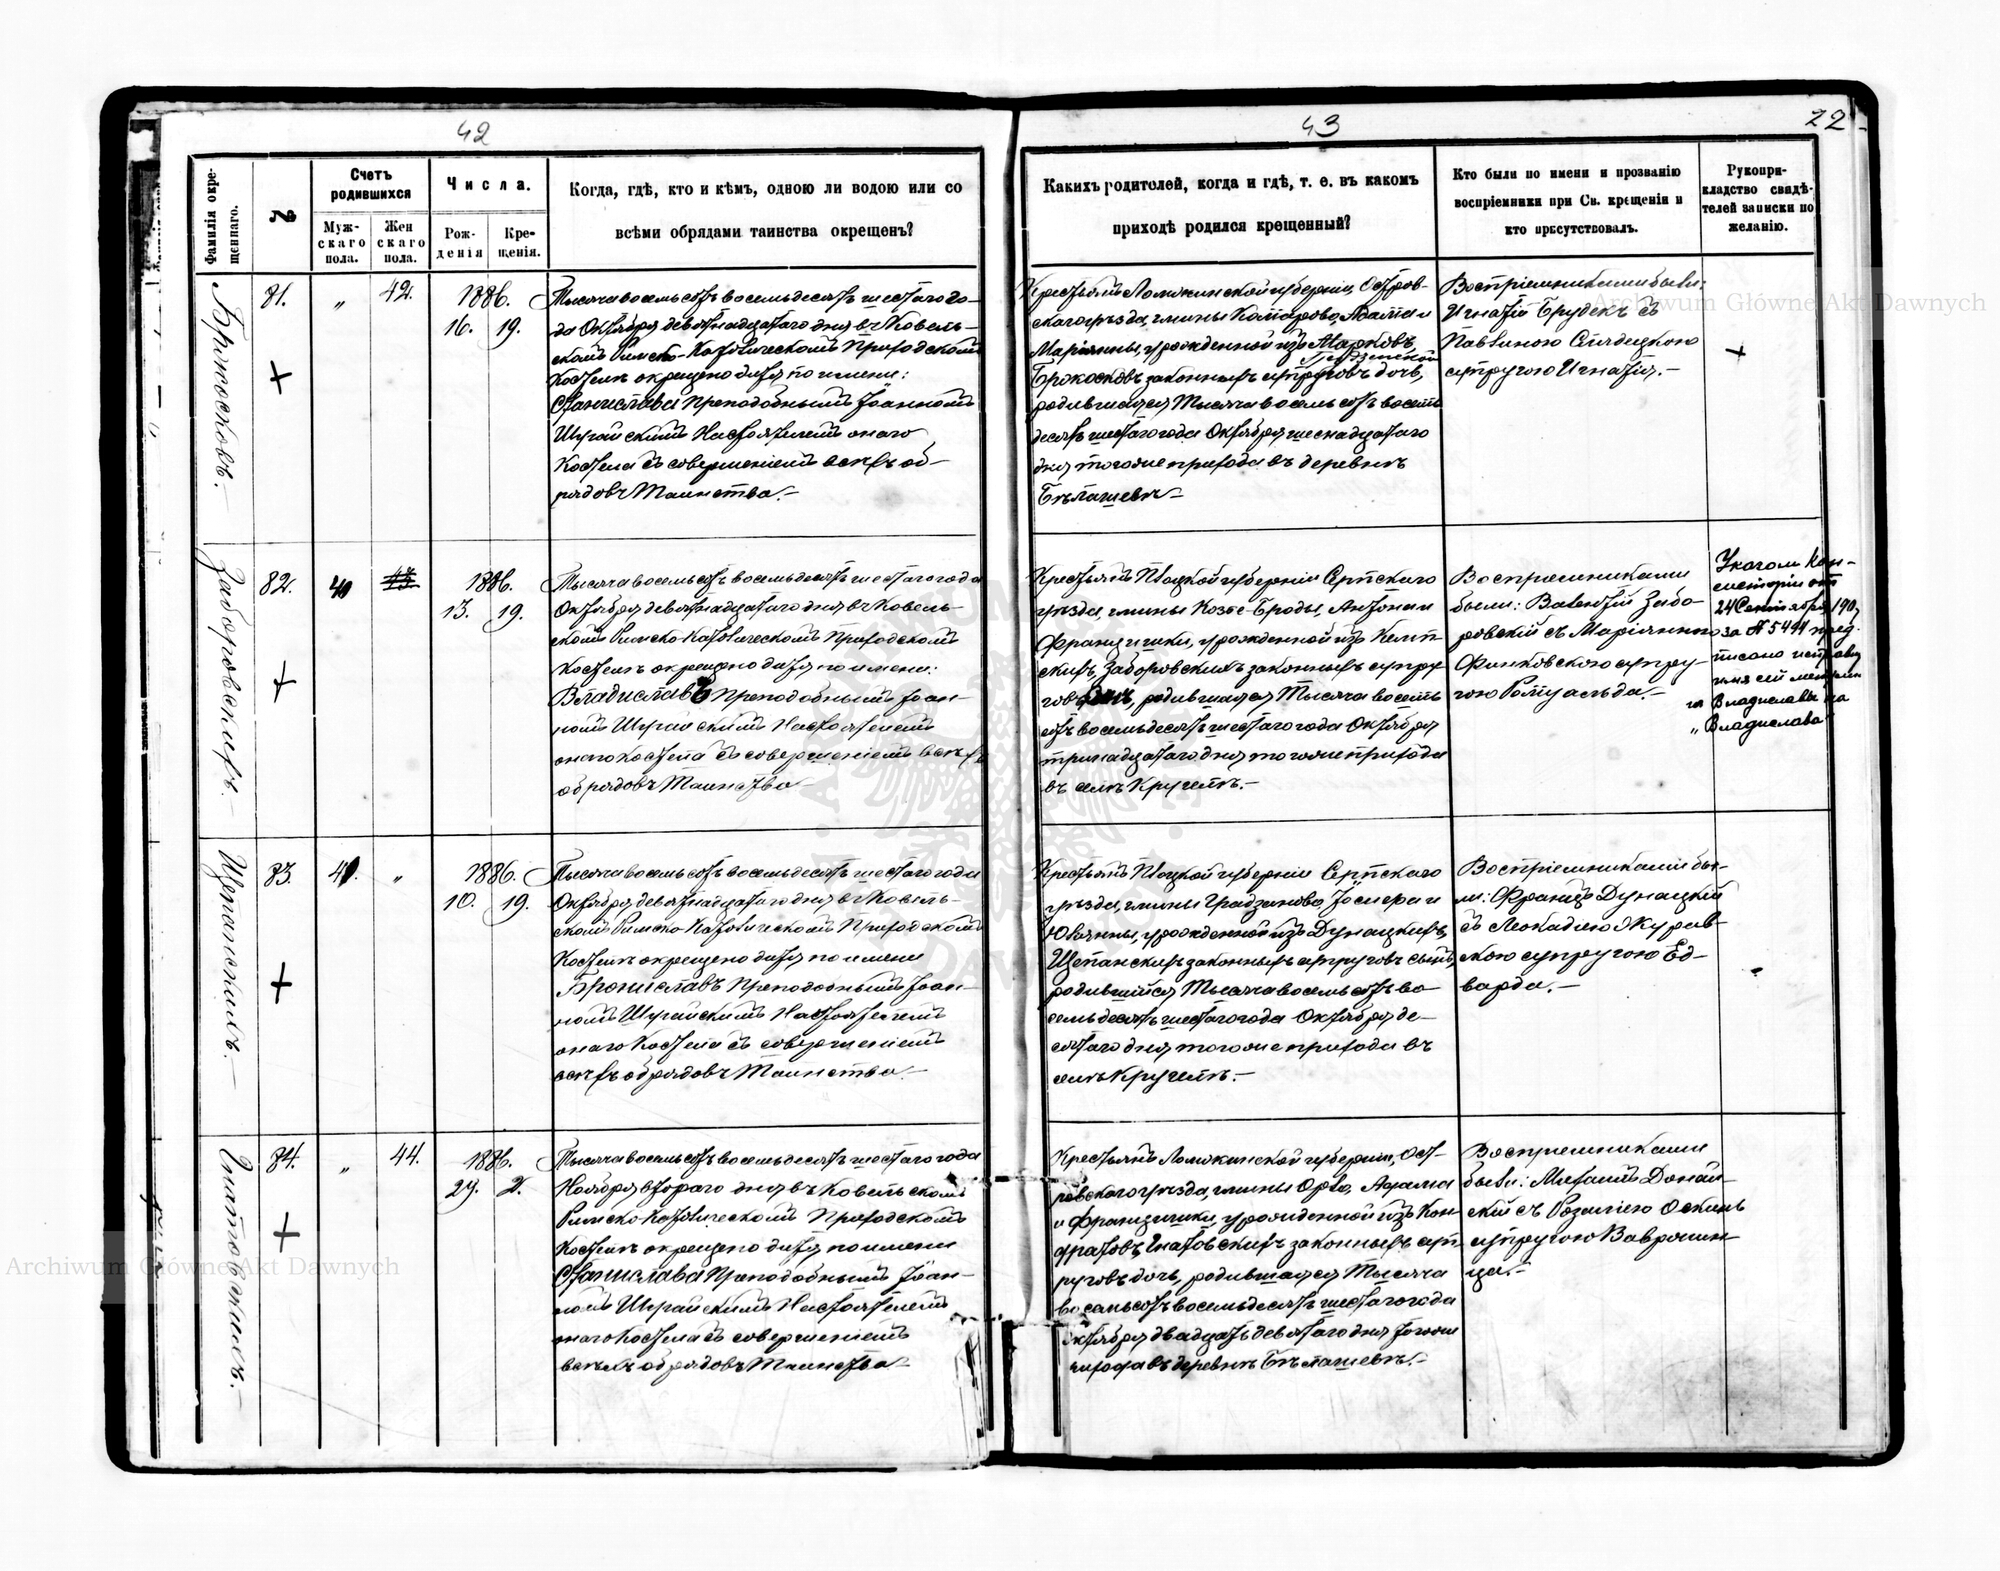 42
Фамилія окре-
щеннаго.
№
Счетъ
родившихся
Муж-
скаго
пола.
Жен
скаго
пола.
Числа.
Рож-
денія
Кре-
щенія.
Когда, гдѣ, кто и кѣмъ, одною ли водою или со
всѣми обрядами таинства окрещенъ?
81.
"
42.
1886.
16. 19.
Тысяча восемьсотъ восемьдесятъ шестаго го-
да Октября девятнадцатаго дня въ Ковель-
скомъ Римско-Католическомъ Приходскомъ
Костелѣ окрещено дитя по имени:
Станислава Преподобнымъ Іоанномъ
Шугайскимъ Настоятелемъ онаго
Костела съ совершеніемъ всѣхъ об-
рядовъ Таинства.-
Забоговскихъ.-
82.
40
43
1886.
13. 19.
Тысяча восемьсотъ восемьдесятъ шестаго года
Октября девятнадцатаго дня въ Ковель-
скомъ Римско-Католическомъ Приходскомъ
Костелѣ окрещено дитя по имени:
Владиславъ Преподобнымъ Іоан-
номъ Шугайскимъ Настоятелемъ
онаго Костела съ совершеніемъ всѣхъ
обрядовъ Таинства.-
Щепанскихъ.-
83.
41.
"
1886.
10. 19.
Тысяча восемьсотъ восемьдесятъ шестаго года
Октября девятнадцатаго дня въ Ковель-
скомъ Римско-Католическомъ Приходскомъ
Костелѣ окрещено дитя по имени
Брониславъ Преподобнымъ Іоан-
номъ Шугайскимъ Настоятелемъ
онаго Костела съ совершеніемъ
всѣхъ обрядовъ Таинства.-
Гнатовскихъ.-
84.
"
44.
1886.
29. 2.
Тысяча восемьсотъ восемьдесятъ шестаго года
Ноября втораго дня въ Ковельскомъ
Римско-Католическомъ Приходскомъ
Костелѣ окрещено дитя по имени
Станислава Преподобнымъ Іоан-
номъ Шугайскимъ Настоятелемъ
онаго Костела съ совершеніемъ
всѣхъ обрядовъ Таинства.-
43
22
Какихъ родителей, когда и гдѣ, т. е. въ какомъ
приходѣ родился крещенный?
Кто были по имени и прозванію
воспріемники при Св. крещеніи и
кто присутствовалъ.
Рукопри-
кладство свидѣ-
телей записки по
желанію.
Крестьянъ Ломжинской губерніи, Остров-
скаго уѣзда, гмины Комарово, Адама и
Маріянны, урожденной изъ Марковъ,
законныхъ супруговъ дочь,
родившаяся Тысяча восемьсотъ восемь
десятъ шестаго года Октября шеснадцатаго
дня тогоже прихода въ деревнѣ
Бѣлашевѣ.-
Воспріемниками были:
Игнатій Брудекъ съ
Павлиною
супругою Игнатія.-
Крестьянъ Плоцкой губерніи Серпскаго
уѣзда, гмины Козье-Броды, Антонаи
Францишки, урожденной изъ Кемп-
скихъ, Заборовскихъ законныхъ супру
говъ родившаяся Тысяча восемь
сотъ восемьдесятъ шестаго года Октября
тринадцатаго дня тогоже прихода
въ селѣ Кругелѣ.-
Воспріемниками
были: Валентій Забо-
ровскій съ Маріянною
Финковскою супру-
гою Ромуальда.-
Указом Кон-
систоріи отъ
24 Сентября 190
за № 5444 пред-
писано исправ
имя сей метрики
"Владиславы на
"Владислава"
Крестьянъ Плоцкой губерніи Серпскаго
уѣзда, гмины Градзаново, Іосифа и
Юліянны, урожденной изъ Дунацкихъ,
Щепанскихъ законныхъ супруговъ сынъ,
родившійся Тысяча восемьсотъ во-
семьдесятъ шестаго года Октября де-
сятаго дня тогоже прихода въ
селѣ Кругелѣ.-
Воспріемниками бы-
ли: Францъ Дунацкій
съ Леокадіею Журав-
скою супругою Ед-
варда.-
Крестьянъ Ломжинской губерніи, Ост-
ровскаго уѣзда, гмины Орло, Адама
и Францишки, урожденной изъ Кон
дратовъ Гнатовскихъ законныхъ суп
руговъ дочь, родившаяся Тысяча
восемьсотъ восемьдесятъ шестаго года
Октября двадцать девятаго дня тогоже
прихода въ деревнѣ Бѣлашевѣ.-
Воспріемниками
были: Михаилъ Донай-
скій съ Розаліею
супругою Вавронин
ца.-
Archiwum Główne Akt Dawnych
Archiwum Główne Akt Dawnych